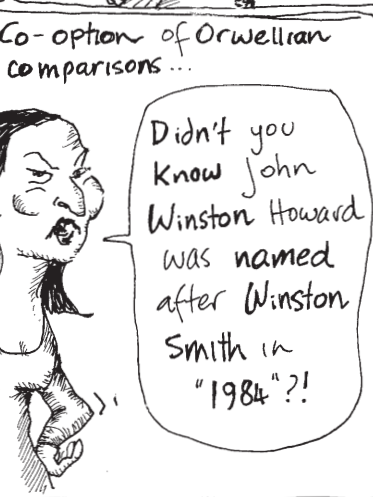 Co-option of Orwellian
comparisons...
Didn't you
know John
Winston Howard
was named
after Winston
Smith in
"1984"?!